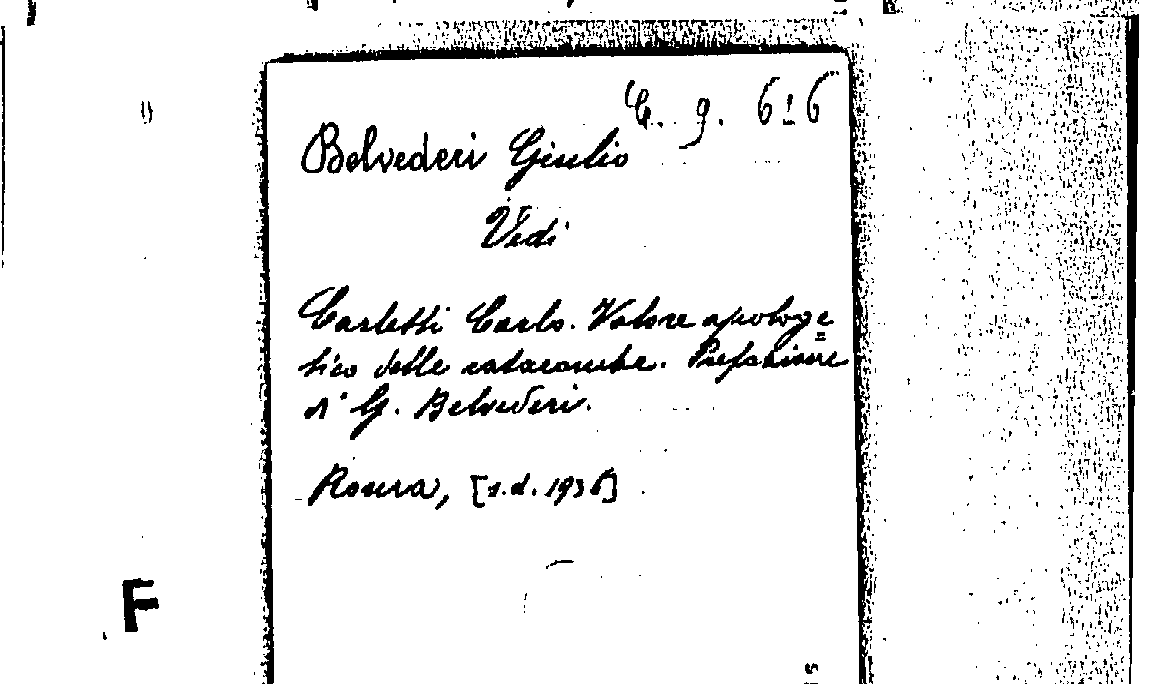 C. 9. 616
Belvederi Giulio
Vedi
Carletti Carlo. Valore apologe=
tico delle catacombe. Prefazione
di G. Belvederi.
Roma, [s.d. 1936]
F